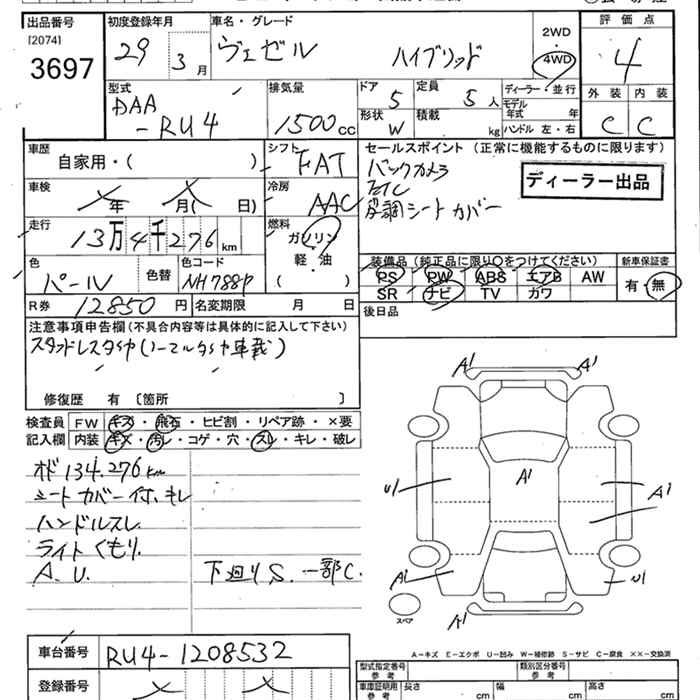 出品番号 初度登録年月 車名・グレード 評価点
[2074]
3697
29 3月 ヴェゼル ハイブリッド 2WD 4WD 4
型式 排気量 ドア 定員 ディーラー・並行 外装 内装
DAA 5 5人 モデル年式 年
-RU4 1500cc 形状 W 積載 kg ハンドル 左・右 C C
車歴 シフト セールスポイント (正常に機能するものに限ります)
自家用・( ) FAT バックカメラ
車検 冷房 ETC ディーラー出品
年 月( 日) AAC シートカバー
走行 燃料
13万4千276km ガソリン
軽・油
( )
色 色替 色コード 装備品 (純正品に限り○をつけてください) 新車保証書
パール NH788P PS PW ABS エアB AW 有・無
SR ナビ TV カワ
R券 12850円 名変期限 月 日 後日品
注意事項申告欄(不具合内容等は具体的に記入して下さい)
スタッドレスタイヤ(ノーマルタイヤ車載)
修復歴 有 〔箇所 〕
検査員 FW キズ・飛石・ヒビ割・リペア跡・×要
記入欄 内装 キズ・汚レ・コゲ・穴・スレ・キレ・破レ
オド134.276km
シートカバー付、キレ
ハンドルスレ
ライトくもり.
A.U. 下廻りS.一部C.
A1 A1
A1
U1 A1
A1 U1
スペア A1
A-キズ E-エクボ U-凹み W-補修跡 S-サビ C-腐食 ××-交換済
車台番号 RU4-1208532
登録番号
型式指定番号 参考 類別区分番号 参考
車庫証明用 参考 長さ cm 幅 cm 高さ cm